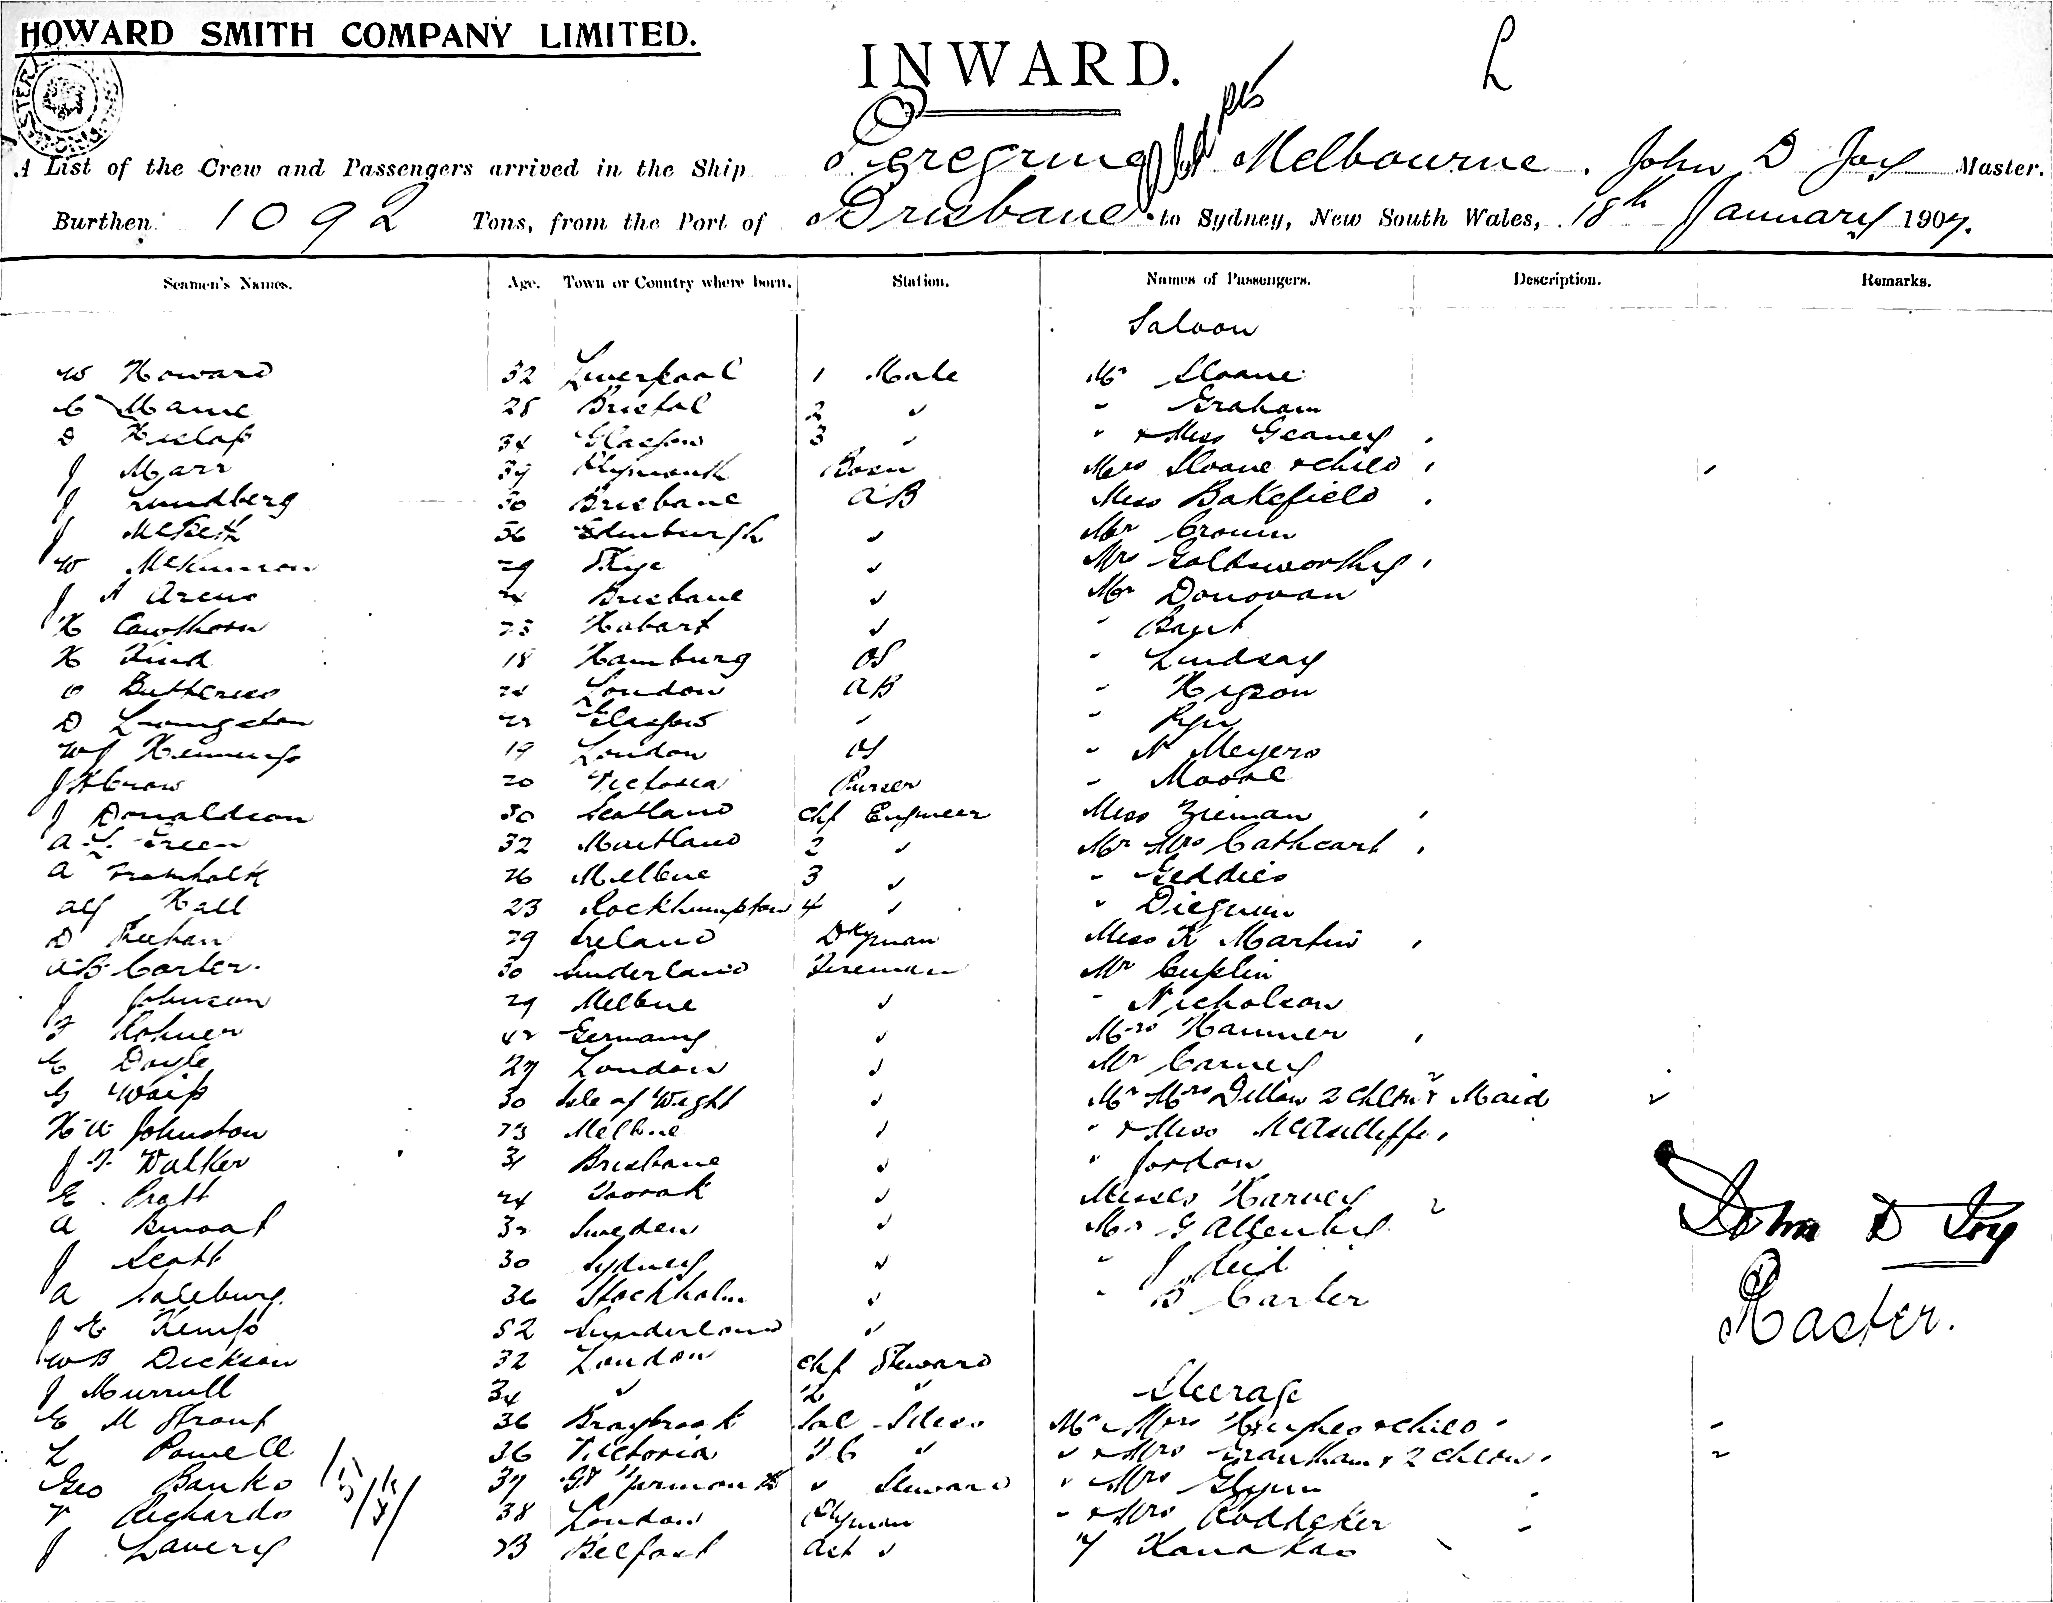 HOWARD SMITH COMPANY LIMITED.
INWARD.
A List of the Crew and Passengers arrived in the Ship Peregrine Melbourne. John D Joy Master.
Burthen 1092 Tons, from the Port of Brisbane to Sydney, New South Wales, 18th January 1907.
Seamen's Names. Age. Town or Country where born. Station. Names of Passengers. Description. Remarks.
Saloon
W Howard 32 Liverpool 1 Mate Mr Sloane
28 Bristol 2 " " Graham
D Hislop 34 Glasgow 3 " " & Miss Geaney
J Marr 39 Plymouth Bosn Mrs Sloane & child
J Lundberg 30 Brisbane AB Miss Bakefield
J McBeth 36 Edinburgh " Mr Cronin
W McKinnon 29 Skye " Mrs Goldsworthy
J A Arens Brisbane " Mr Donovan
H Cawthorn 23 Hobart "
H 18 Hamburg OS " Lindsay
Buttress London AB " Higson
D Livingston Glasgow "
WJ Hennings 19 London OS " N Meyers
J H Crow 20 Victoria Purser " Moore
J Donaldson 30 Scotland Chf Engineer Miss Zieman
A L Green 32 Maitland 2 " Mr Mrs Cathcart
A 26 Melbne 3 " " Geddies
Alf Hall 23 Rockhampton 4 " "
D Sheehan 29 Ireland Dkyman Miss K Martin
A B Carter. 30 Sunderland Fireman Mr
J Johnson 29 Melbne " " Nicholson
F Rohner 42 Germany " Mrs Hammer
E Doyle 27 London " Mr Carney
G 30 Isle of Wight " Mr Mrs Dillon 2 chldn & Maid
H W Johnston 23 Melbne " " & Miss McAuliffe
J F Walker 31 Brisbane " " Jordan
E. Pratt 24 Toorak " Misses Harvey 2
A 32 Sweden " Mr G Allenby
J Scott 30 Sydney " " J Reid
A Soleburg. 36 Stockholm " " B Carter
J E Kemp 52 Sunderland "
W B Dickson 32 London Chf Steward
J Murrell 34 " 2 " Steerage
E M Stront 36 Braybrook Sal Stdess Mr Mrs Hughes & child
L Powell 36 Victoria 2C " " & Mrs Grantham & 2 chldn
Geo Banks 37 Gt Yarmouth " Steward " " Mrs Glynn
T Richards 38 London Ptyman " & Mrs Roddeker
J Lavery 23 Belfast Act " 7 Kanakas
John D Joy
Master.